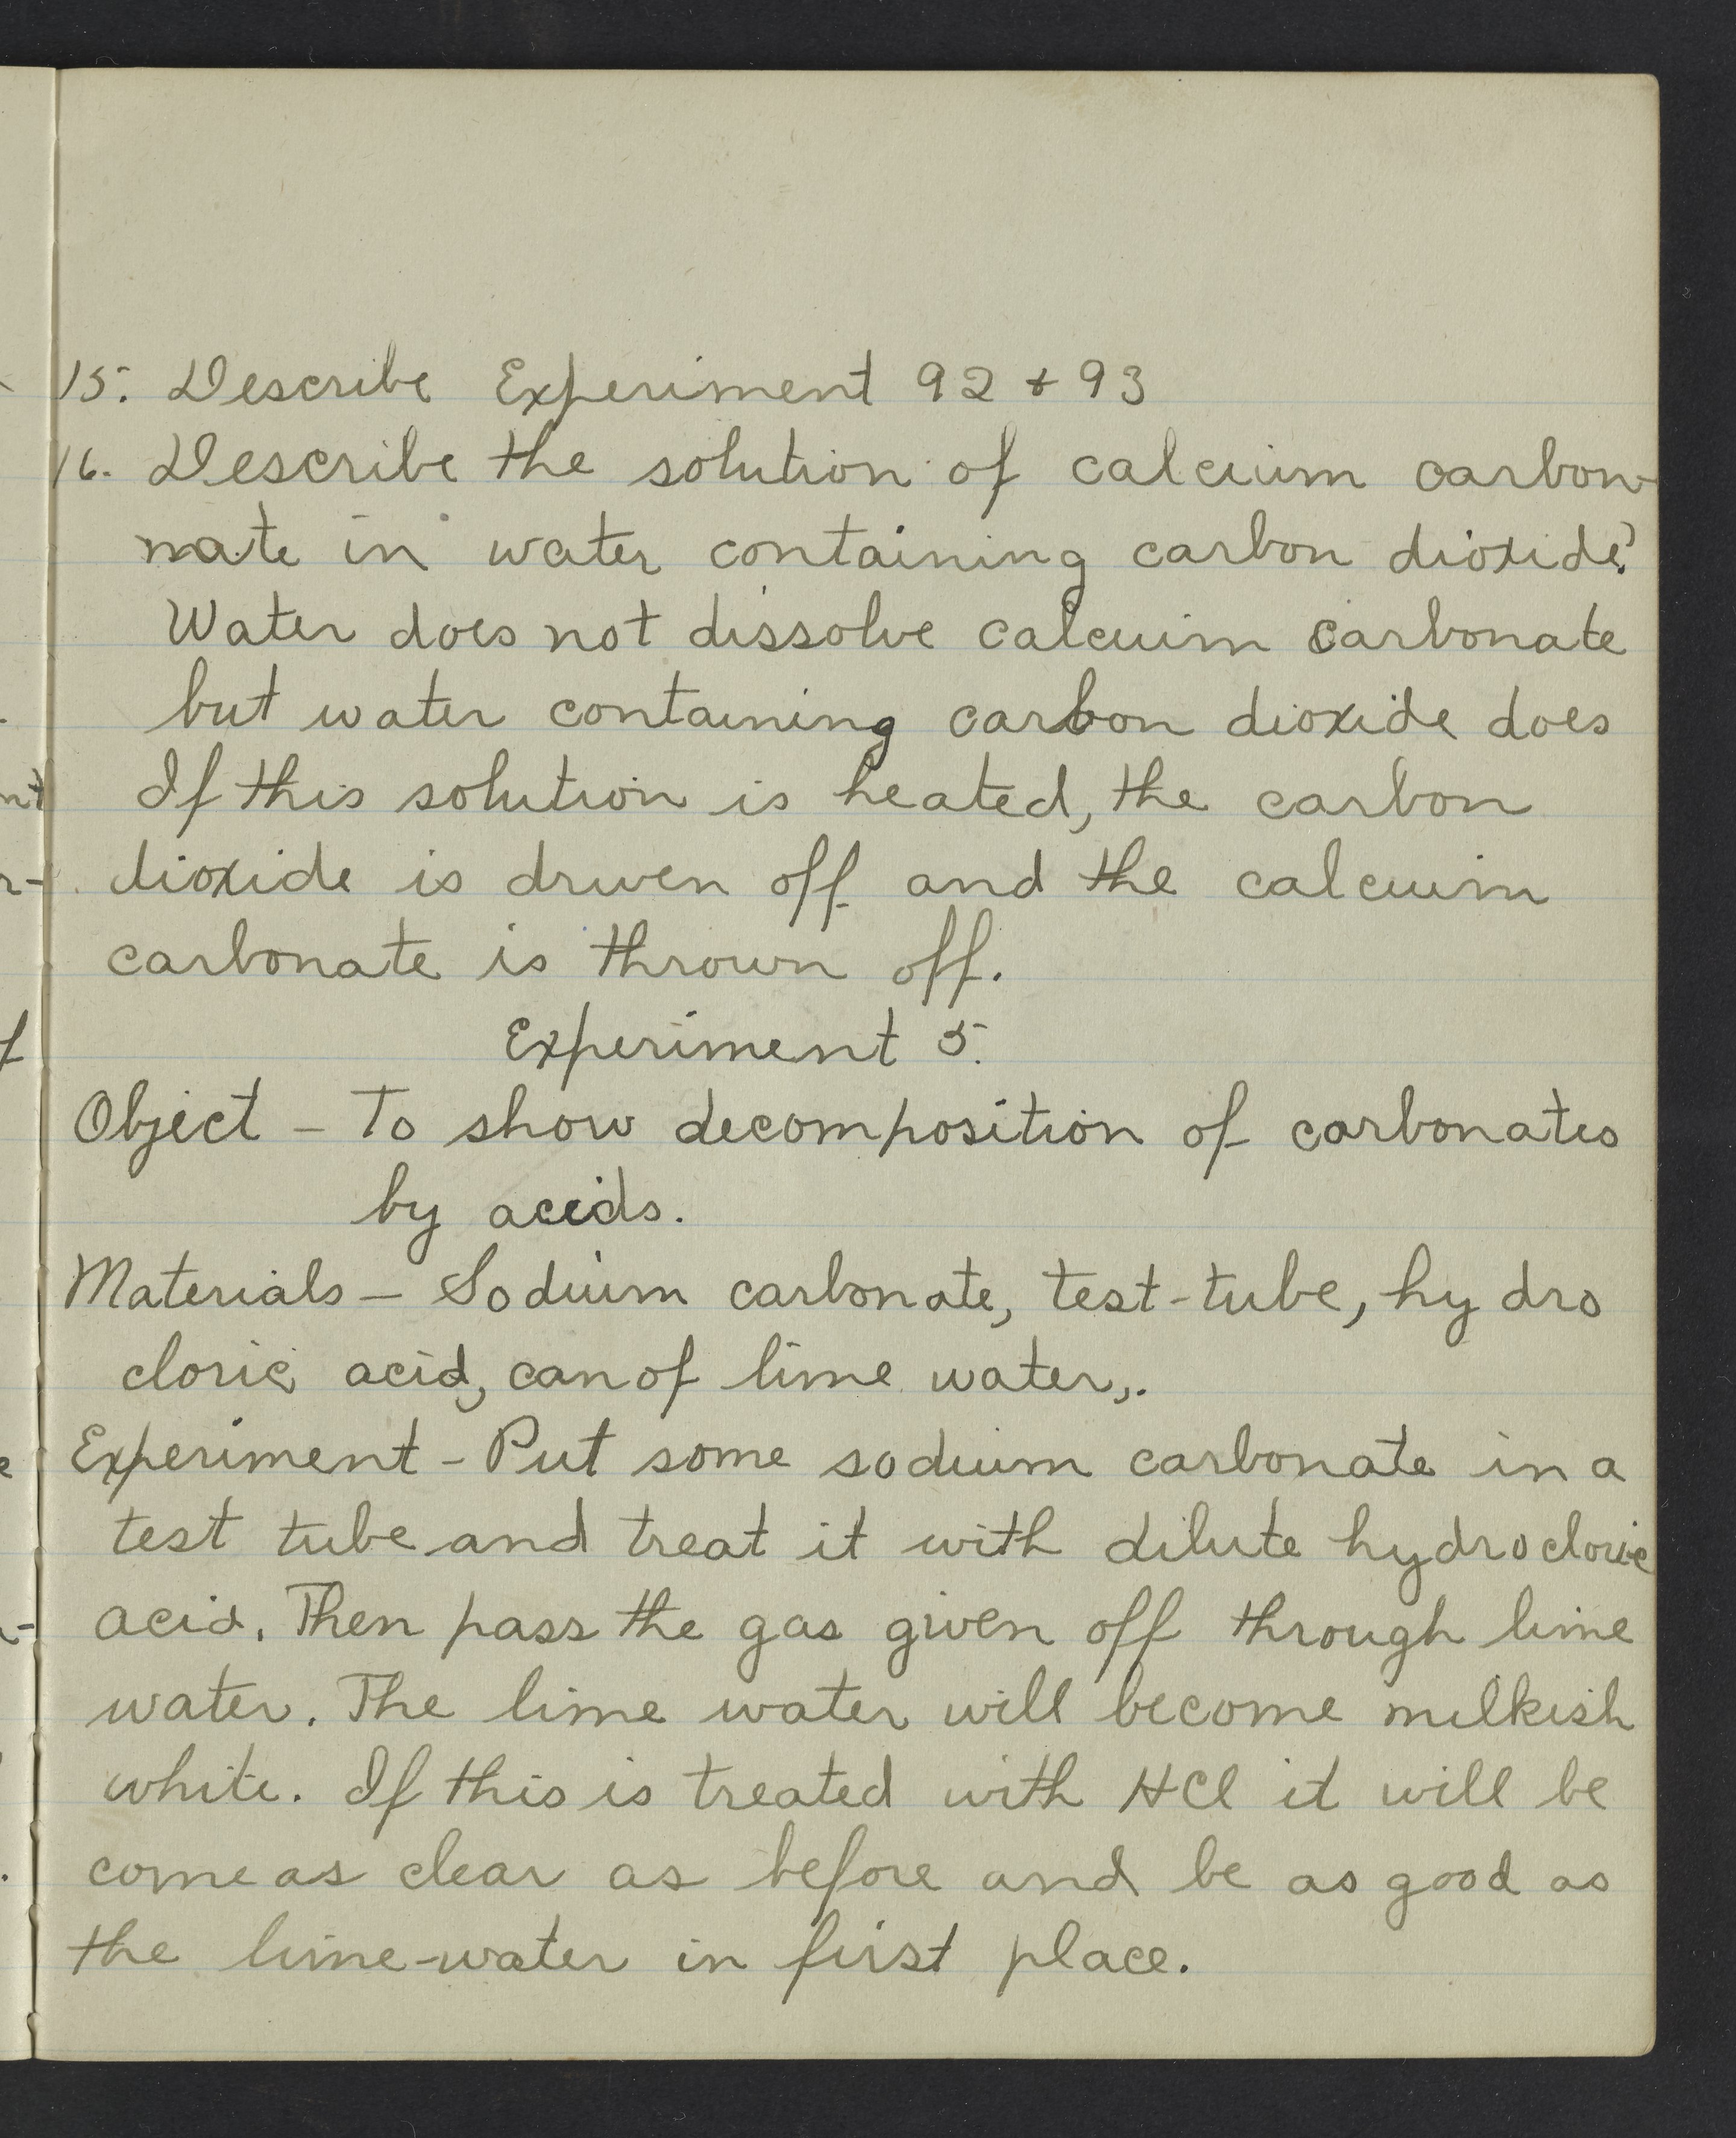 15. Describe Experiment 92 & 93
16. Describe the solution of calcium carbon-
nate in water containing carbon dioxide?
Water does not dissolve calcuim carbonate
but water containing carbon dioxide does
If this solution is heated, the carbon
dioxide is driven off and the calcuim
carbonate is thrown off.
Experiment 5.
Object - To show decomposition of carbonates
by acids.
Materials - Sodium carbonate, test-tube, hydro
cloric acid, can of lime water,.
Experiment - Put some sodium carbonate in a
test tube and treat it with dilute hydrocloric
acid. Then pass the gas given off through lime
water. The lime water will become milkish
white. If this is treated with HCl it will be
come as clear as before and be as good as
the lime-water in first place.